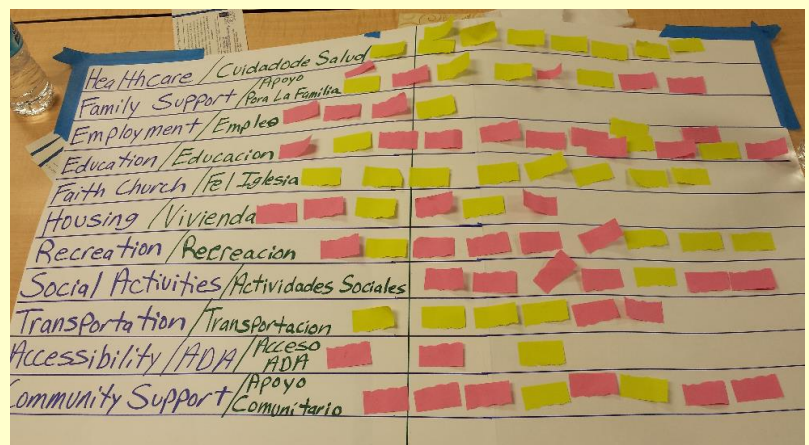 Healthcare / Cuidadode Salud
Family Support / Apoyo
Para La Familia
Employment / Empleo
Education / Educacion
Faith Church / Fe I Iglesia
Housing / Vivienda
Recreation / Recreacion
Social Activities / Actividades Sociales
Transportation / Transportacion
Accessibility / ADA / Acceso
ADA
ommunity Support / Apoyo
Comunitario